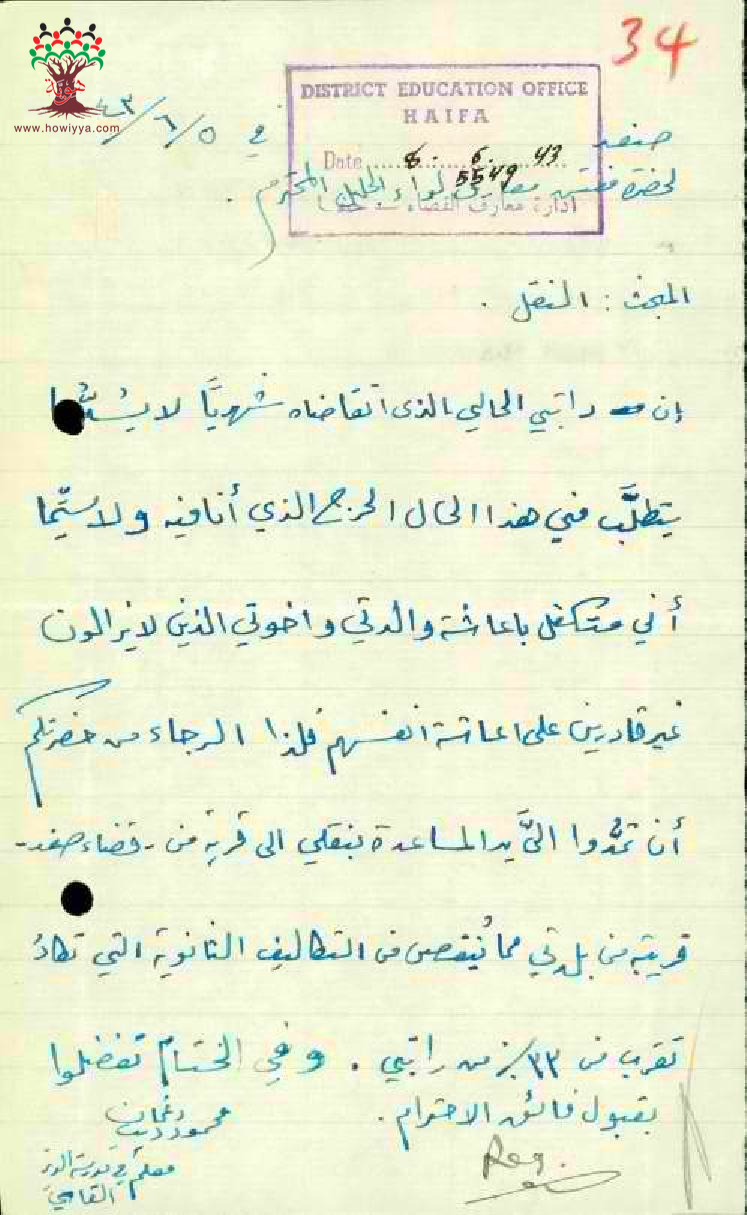 34
هوية
www.howiyya.com
DISTRICT EDUCATION OFFICE
HAIFA
Date 8. 6. 43
5549
ادارة معارف القضاء
صفد في ٥/٦/٤٣
لحضرة مفتش معارف لواء الجليل المحترم .
المبحث : النقل .
إن راتبي الحالي الذى اتقاضاه شهريًّا لا
يتطلَّب مني هذا الحال الحرج الذي أنا فيه ولا سيّما
أني متكفل باعاشة والدتي واخوتي الذين لا يزالون
غير قادرين على اعاشة انفسهم فلذا الرجاء من حضرتكم
أن تمدُّوا اليَّ يد المساعدة بنقلي الى قرية من - قضاء صفد -
قريبة من بلدتي مما يُنقص من التكاليف الثانوية التي تكادُ
تقرب من ٣٣٪ من راتبي . وفي الختام تفضلوا
بقبول فائق الاحترام .
محمود ديب
معلم في مدرسة
Reg.